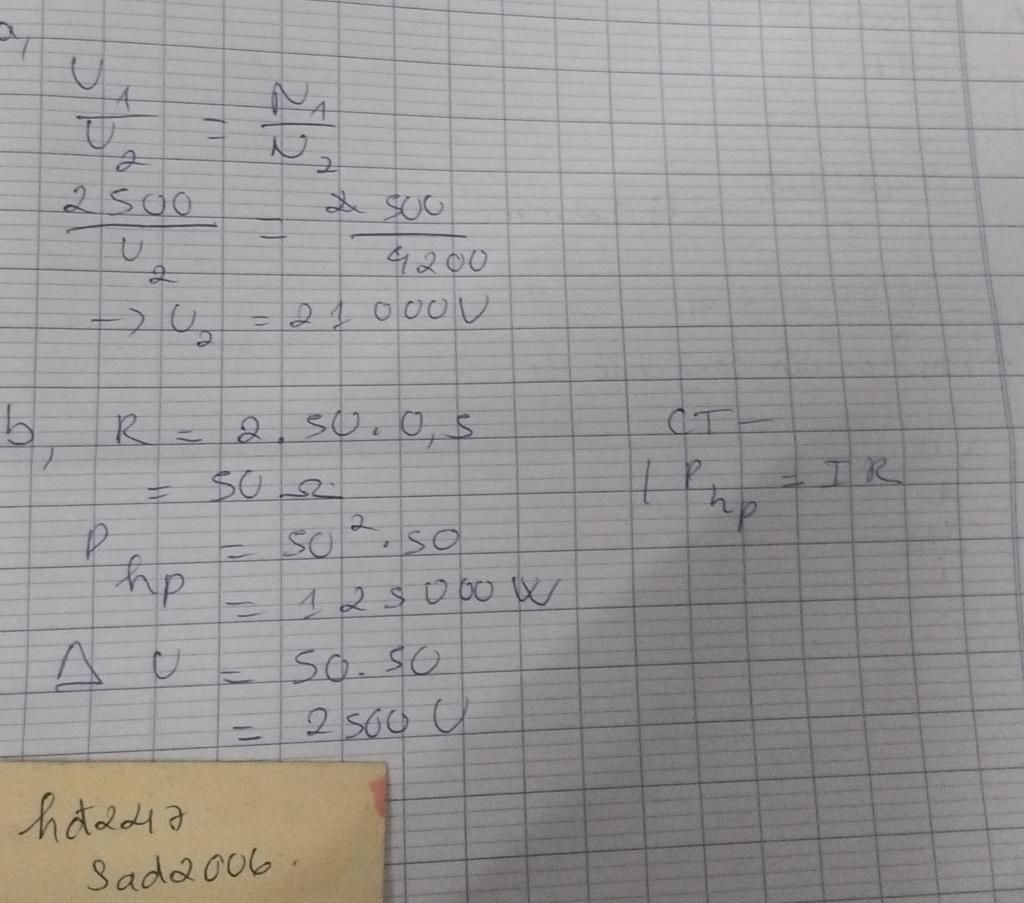 a,
U1/U2 = N1/N2
2500/U2 = 500/4200
→ U2 = 21 000V
b, R = 2.50.0,5
= 50 Ω
CT
P hp = I R
P hp = 50².50
= 125 000 W
Δ U = 50.50
= 2500 V
hd247
Sad2006.